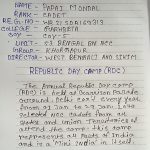 NAME - PAPAI MONDAL
RANK - CADET
REG. NO - WB21SDA169313
COLLEGE - MAHARAJA
COY - COY-5
UNIT - 53 BENGAL BN NCC
GROUP - KHARAGPUR
DIRECTOR - WEST BENGAL AND SIKKIM
REPUBLIC DAY CAMP (RDC)
The Annual Republic Day Camp
(RDC) is held at Garrison Parade
Ground, Delhi Cantt every year
from 01 Jan to 29 Jan. The
selected NCC Cadets from all
states and Union Territories
attend the camp. This camp
represents all parts of India
and is a Mini India in itself.